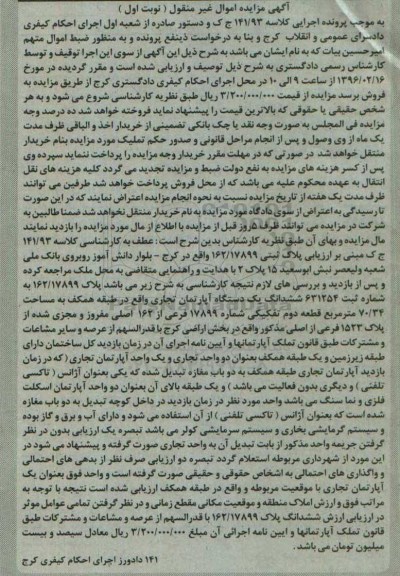 آگهی مزایده اموال غیر منقول ( نوبت اول )
به موجب پرونده اجرایی کلاسه ۱۴۱/۹۳ ج ک و دستور صادره از شعبه اول اجرای احکام کیفری
دادسرای عمومی و انقلاب کرج و بنا به درخواست ذینفع پرونده و به منظور ضبط اموال متهم
امیرحسین بیات که به نام ایشان می باشد به شرح ذیل این آگهی از سوی این اجرا توقیف و توسط
کارشناس رسمی دادگستری به شرح ذیل توصیف و ارزیابی شده است و مقرر گردیده در مورخ
۱۳۹۶/۰۲/۱۶ از ساعت ۹ الی ۱۰ در محل اجرای احکام کیفری دادگستری کرج از طریق مزایده به
فروش برسد مزایده از قیمت ۳/۲۰۰/۰۰۰/۰۰۰ ریال طبق نظریه کارشناسی شروع می شود و به هر
شخص حقیقی یا حقوقی که بالاترین قیمت را پیشنهاد نماید فروخته خواهد شد ده درصد وجه
مزایده فی المجلس به صورت وجه نقد یا چک بانکی تضمینی از خریدار اخذ و الباقی ظرف مدت
یک ماه از وی وصول و پس از انجام مراحل قانونی و صدور حکم تملیک مورد مزایده بنام خریدار
منتقل خواهد شد. در صورتی که در مهلت مقرر خریدار وجه مزایده را پرداخت ننماید سپرده وی
پس از کسر هزینه های مزایده به نفع دولت ضبط و مزایده تجدید می گردد کلیه هزینه های نقل
انتقال به عهده محکوم علیه می باشد که از محل فروش پرداخت خواهد شد طرفین می توانند
ظرف مدت یک هفته از تاریخ مزایده نسبت به نحوه انجام مزایده اعتراض نمایند که در این صورت
تا رسیدگی به اعتراض از سوی دادگاه مورد مزایده به نام خریدار منتقل نخواهد شد ضمنا طالبین به
شرکت در مزایده می توانند ظرف روز قبل از مزایده با اطلاع از مال مورد مزایده را بازدید نمایند
مال مزایده و بهای آن طبق نظریه کارشناس بدین شرح است: عطف به کارشناسی کلاسه ۱۴۱/۹۳
ج ک مبنی بر ارزیابی پلاک ثبتی ۱۶۲/۱۷۸۹۹ واقع در کرج - بلوار دانش آموز روبروی بانک ملی
شعبه ولیعصر نبش ابوسعید ۱۵ پلاک ۲ با هدایت و راهنمایی متقاضی به محل ملک مراجعه کرده
و پس از بازدید و بررسی های لازم نتیجه کارشناسی به شرح زیر می باشد پلاک ۱۶۲/۱۷۸۹۹ به
شماره ثبت ۶۳۱۲۵۴ ششدانگ یک دستگاه آپارتمان تجاری واقع در طبقه همکف به مساحت
۷۰/۳۴ مترمربع قطعه دوم تفکیکی شماره ۱۷۸۹۹ فرعی از ۱۶۲ اصلی مفروز و مجزی شده از
پلاک ۱۵۲۳ فرعی از اصلی مذکور واقع در بخش اراضی کرج با قدرالسهم از عرصه و سایر مشاعات
و مشترکات طبق قانون تملک آپارتمانها و آیین نامه اجرای آن در زمان بازدید کل ساختمان دارای
طبقه زیرزمین و یک طبقه همکف بعنوان دو واحد تجاری و یک واحد آپارتمان تجاری (که در زمان
بازدید آپارتمان تجاری طبقه همکف به دو باب مغازه تبدیل شده که یکی بعنوان آژانس ( تاکسی
تلفنی ) و دیگری بدون فعالیت می باشد ) و یک طبقه بالای آن بعنوان دو واحد آپارتمان اسکلت
فلزی و نما سنگ می باشد واحد مورد نظر در زمان بازدید در داخل کوچه تبدیل به دو باب مغازه
شده است که بعنوان آژانس ( تاکسی تلفنی ) از آن استفاده می شود و دارای آب و برق و گاز بوده
و سیستم گرمایشی بخاری و سیستم سرمایشی کولر می باشد تبصره یک ارزیابی بدون در نظر
گرفتن جریمه واحد مذکور از بابت تبدیل آن به واحد تجاری صورت گرفته و پیشنهاد می شود در
این مورد از شهرداری مربوطه استعلام گردد تبصره دو ارزیابی صرف نظر از بدهی های احتمالی
و واگذاری های احتمالی به اشخاص حقوقی و حقیقی صورت گرفته است و واحد فوق بعنوان یک
آپارتمان تجاری با موقعیت مربوطه و واقع در طبقه همکف ارزیابی شده است نتیجه با توجه به
مراتب فوق و ارزش املاک منطقه و موقعیت مکانی مقطع زمانی و در نظر گرفتن تمامی عوامل موثر
در ارزیابی ارزش ششدانگ پلاک ۱۶۲/۱۷۸۹۹ با قدرالسهم از عرصه و مشاعات و مشترکات طبق
قانون تملک آپارتمانها و ایین نامه اجرائی آن مبلغ ۳/۲۰۰/۰۰۰/۰۰۰ ریال معادل سیصد و بیست
میلیون تومان می باشد.
۱۴۱ دادورز اجرای احکام کیفری کرج